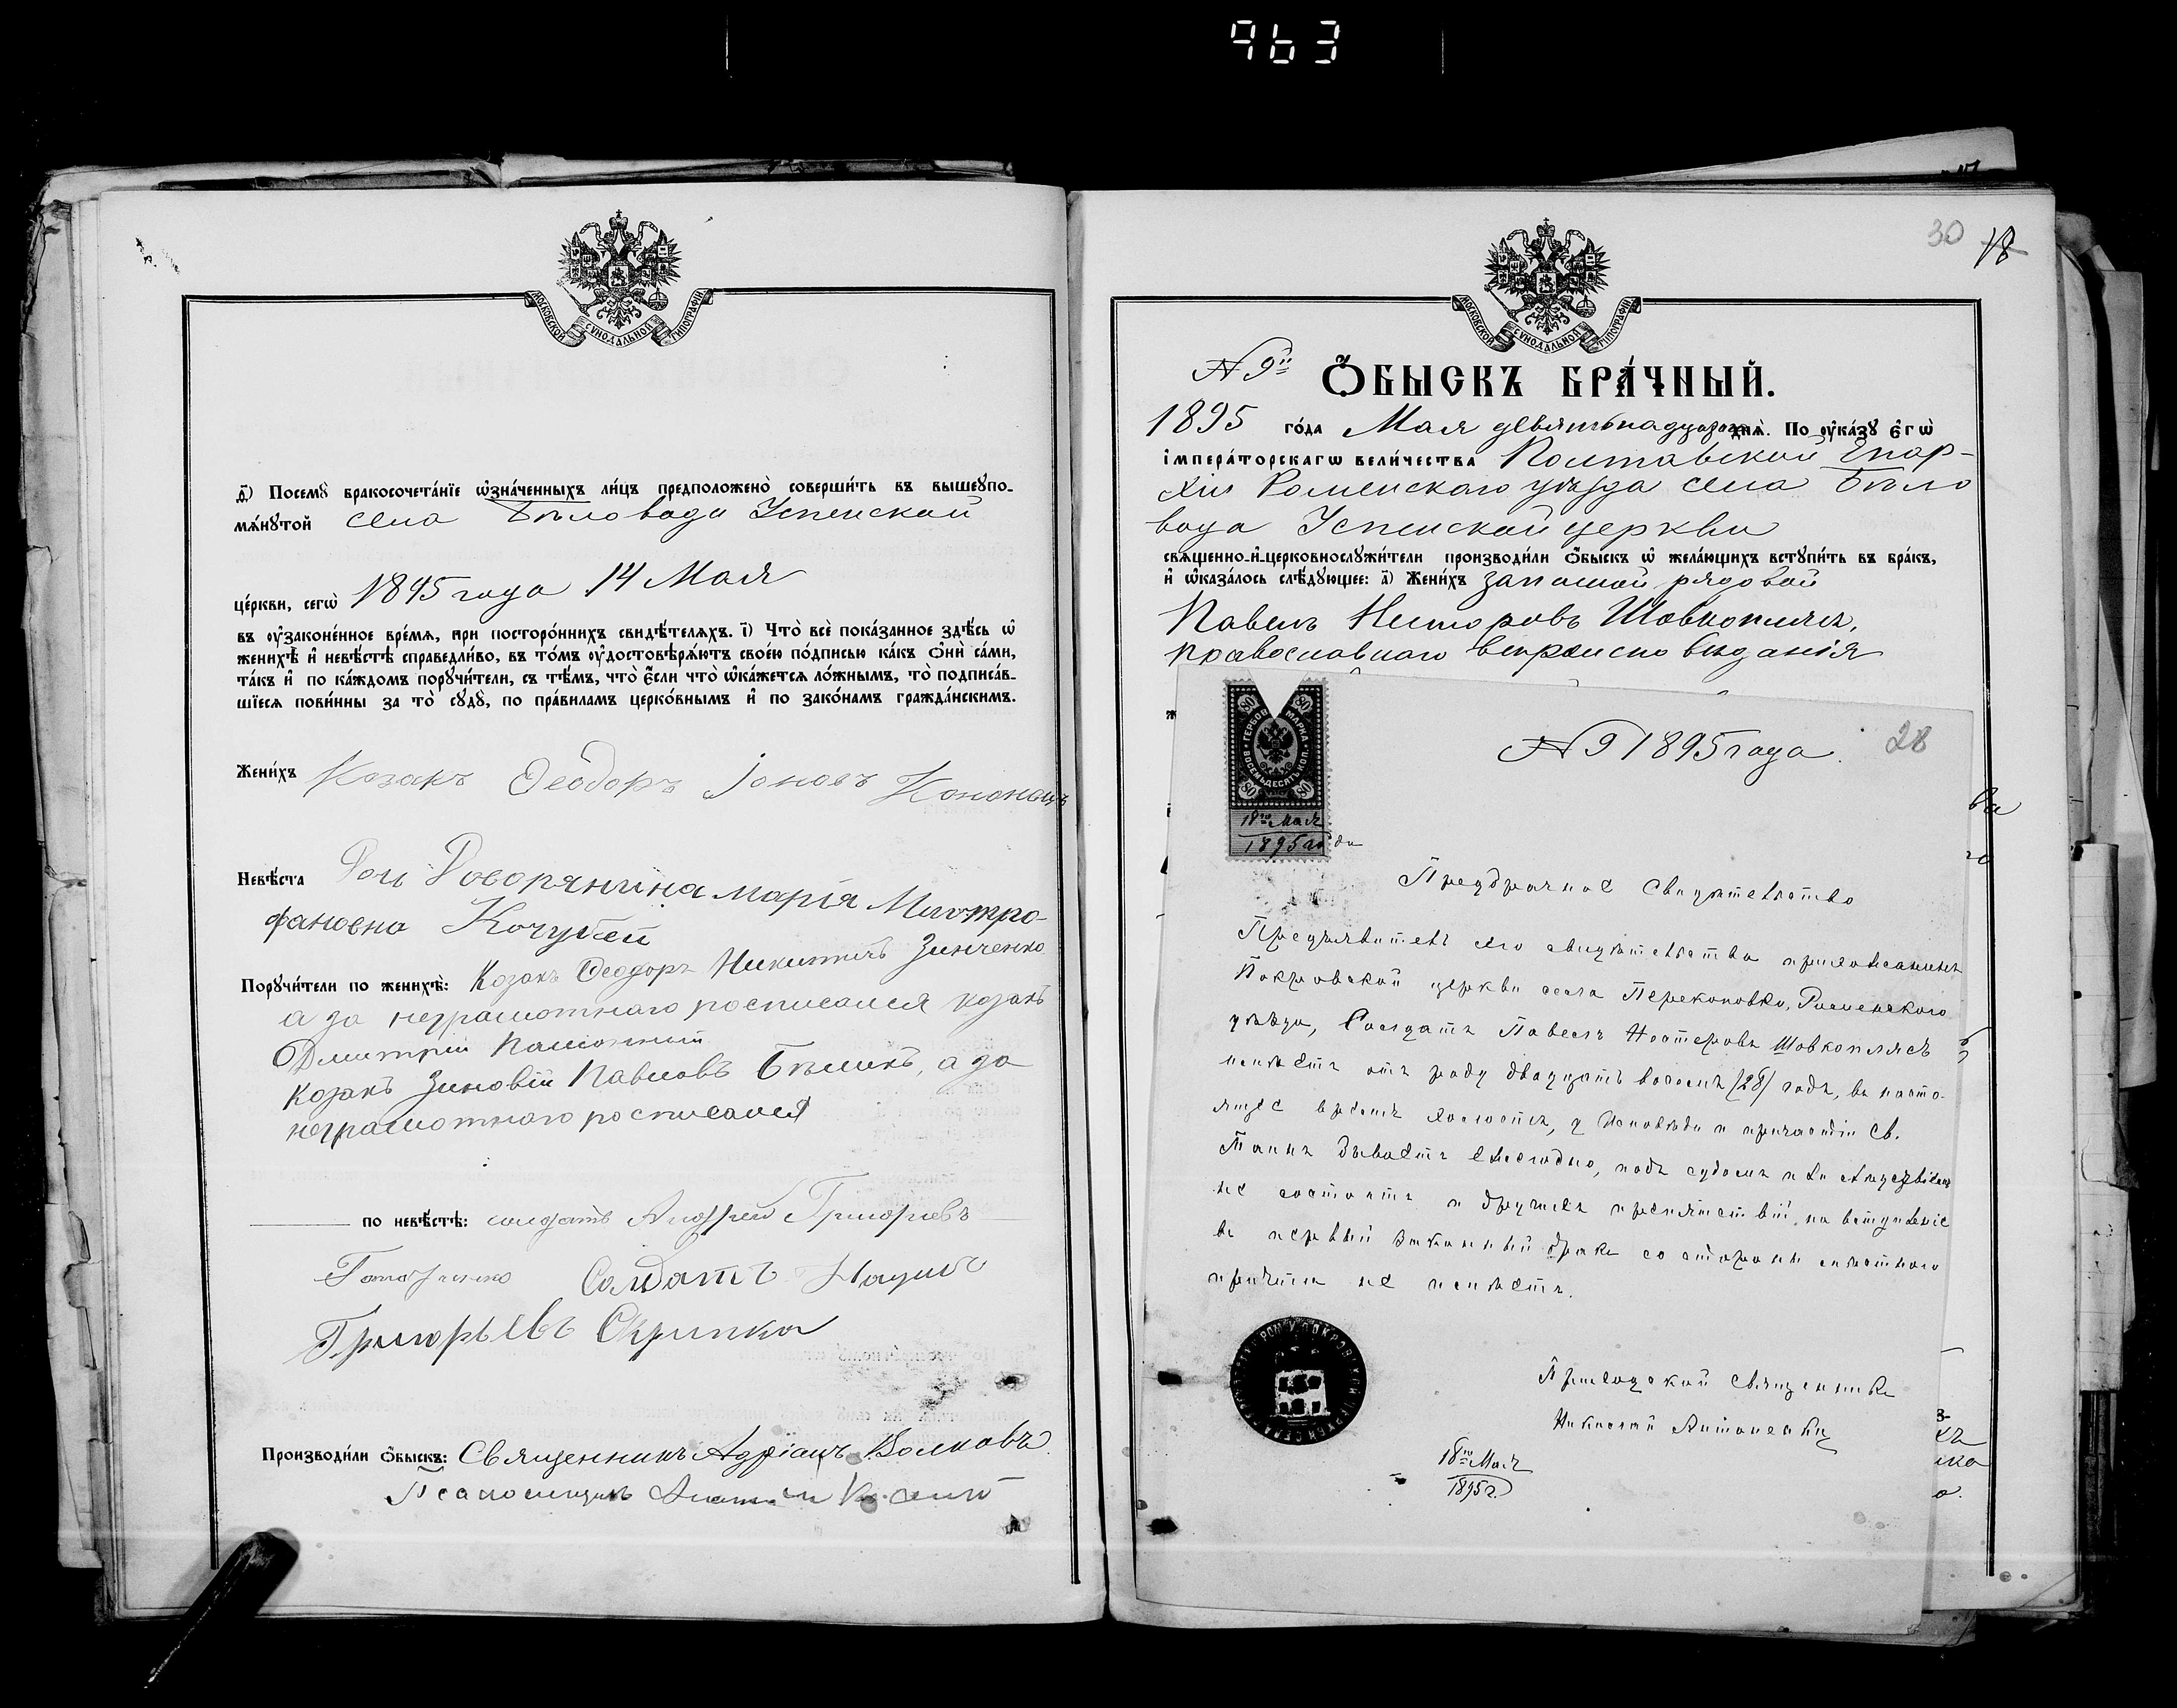 963
МОСКОВСКОЙ СѴНОДАЛЬНОЙ ТИПОГРАФІИ
д҃) Посемꙋ бракосочета́нїе ѡ҆зна́ченныхъ ли́цъ предположено̀ соверши́ть въ вышеꙋпо-
мѧ́нꙋтой села Бѣловодъ Успенской
це́ркви, сегѡ̀ 1895 года 14 Мая
въ ᲂу҆зако́ненное вре́мѧ, при посторо́ннихъ свидѣ́телѧхъ. і҃) Что̀ всѐ пока́занное здѣ́сь ѡ҆
женихѣ̀ и҆ невѣ́стѣ справедли́во, въ то́мъ ᲂу҆достовѣрѧ́ютъ свое́ю по́дписью ка́къ ѻ҆нѝ са́ми,
та́къ и҆ по ка́ждомъ порꙋчи́тели, съ тѣ́мъ, что̀ є҆́сли что̀ ѡ҆ка́жетсѧ ло́жнымъ, то̀ подписа́в-
шїесѧ пови́нны за то̀ сꙋдꙋ̀, по пра́виламъ церко́внымъ и҆ по зако́намъ гражда́нскимъ.
Жени́хъ Козакъ Ѳеодоръ Іоновъ Кононецъ
Невѣ́ста Марія Митро-
фановна Кочубей
Порꙋчи́тели по женихѣ̀: Козакъ Ѳеодоръ Никитичъ Зинченко
а за неграмотнаго росписался козакъ
Дмитрій
Козакъ Зиновій Павловъ Бѣликъ, а за
неграмотнаго росписался
по невѣ́стѣ: солдатъ Андрей Григорьевъ
Солдатъ Наумъ
Григорьевъ Скрипка
Производи́ли ѻ҆́быскъ: Священникъ Адріанъ Волковъ
Псаломщикъ
30 18
МОСКОВСКОЙ СѴНОДАЛЬНОЙ ТИПОГРАФІИ
N 9й Ѻ҆́БЫСКЪ БРА́ЧНЫЙ.
1895 го́да Мая девятнадцатаго днѧ̀. По ᲂу҆ка́зꙋ є҆гѡ̀
і҆мпера́торскагѡ вели́чества Полтавской Епар-
хіи Роменскаго уѣзда села Бѣло
вода Успенской церкви
свѧще́нно-и҆-церковнослꙋжи́тели производи́ли ѻ҆́быскъ ѡ҆ жела́ющихъ встꙋпи́ть въ бра́къ,
и҆ ѡ҆каза́лось слѣ́дꙋющее: а҃) Жени́хъ запасной рядовой
Павелъ Несторовъ Шовкоплясъ,
православнаго вѣроисповѣданія
N 9 1895 года. 28
80 80
ГЕРБОВ. МАРКА
ВОСЕМЬДЕСЯТЪ КОП.
80 80
18го Мая
1895 года
Предбрачное свидѣтельство
Предъявитель сего свидѣтельства прихожанинъ
Покровской церкви села Перекоповки, Роменскаго
уѣзда, Солдатъ Павелъ Нестеровъ Шовкоплясъ
имѣетъ отъ роду двадцать восемь (28) годъ, въ насто-
ящее время холостъ, у Исповѣди и причастія Св.
Таинъ бываетъ ежегодно, подъ судомъ и слѣдствіемъ
не состоитъ и другихъ препятствій, на вступленіе
въ первый законный бракъ со стороны мѣстнаго
причта не имѣетъ.
Приходской Священникъ
Николай
18го Мая
1895 г.